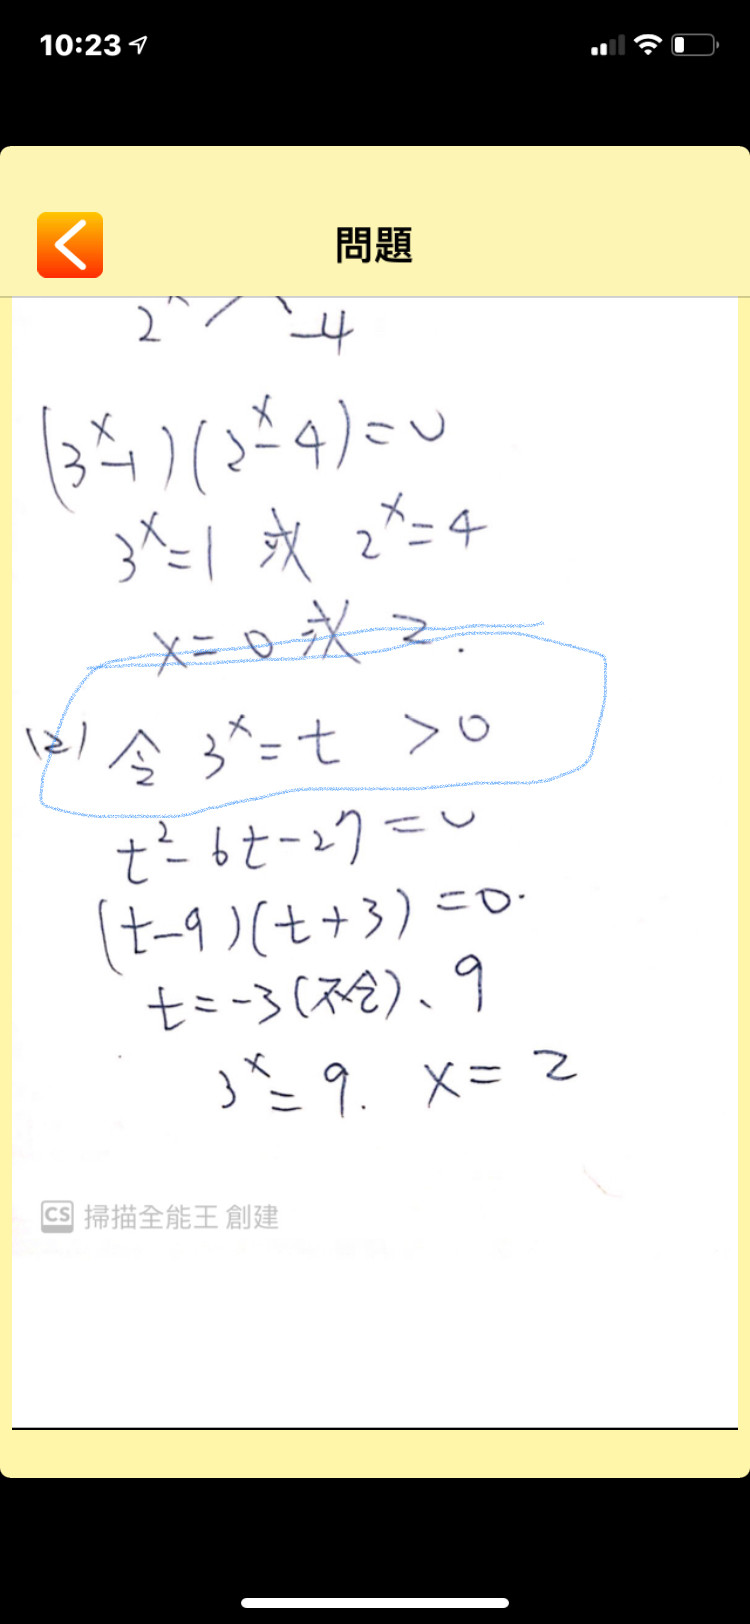 10:23
問題
2ˣ -4
(3ˣ-1)(2ˣ-4)=0
3ˣ=1 或 2ˣ=4
x=0 或 2.
(2) 令 3ˣ=t >0
t²-6t-27=0
(t-9)(t+3)=0.
t=-3(不合)、9
3ˣ=9. x=2
CS 掃描全能王 創建